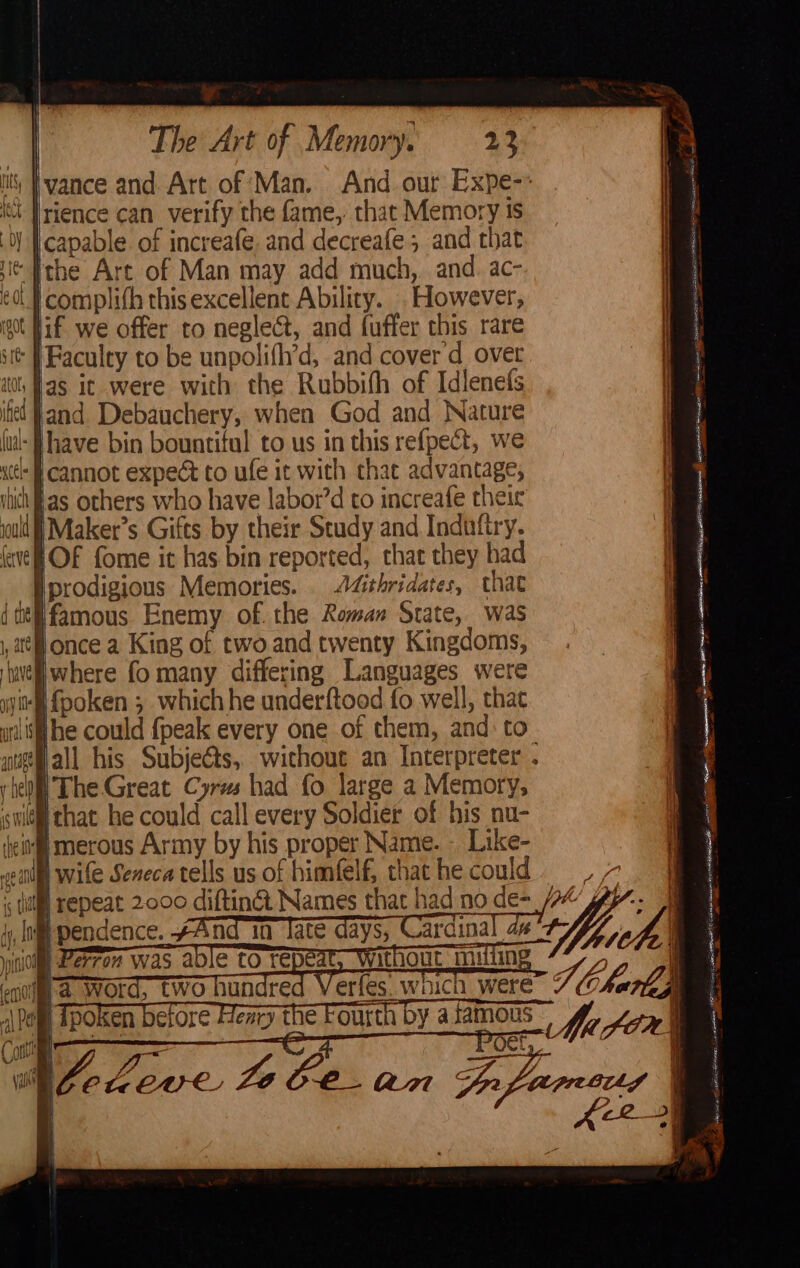 The Art of Memory. 23
vance and Art of Man. And our Expe-
rience can verify the ſame, that Memory is
capable of increaſe and decreaſe; and that
the Art of Man may add much, and ac-
compliſh this excellent Ability. However,
if we offer to neglect, and ſuffer this rare
Faculty to be unpoliſh'd, and cover'd over
as it were with the Rubbiſh of Idleneſs
and Debauchery, when God and Nature
have bin bountiful to us in this reſpect, we
cannot expect to uſe it with that advantage,
as others who have labor'd to increaſe their
Maker's Gifts by their Study and Induſtry.
Of ſome it has bin reported, that they had
prodigious Memories. Mithridates, that
famous Enemy of the Roman State, was
once a King of two and twenty Kingdoms,
where ſo many differing Languages were
ſpoken; which he underſtood ſo well, that
he could ſpeak every one of them, and to
all his Subjects, without an Interpreter.
The Great Cyrus had ſo large a Memory,
that he could call every Soldier of his nu-
merous Army by his proper Name. Like-
wiſe Seneca tells us of himſelf, that he could
repeat 2000 diſtinct Names that had no de-
pendence. And in late days, Cardinal du Which
Perron was able to repeat, without miſſing
a Word, two hundred Verſes which were I Charles
ſpoken before Henry the Fourth by a famous Mason
Poet,
beleeve to be an Infamous
Lie